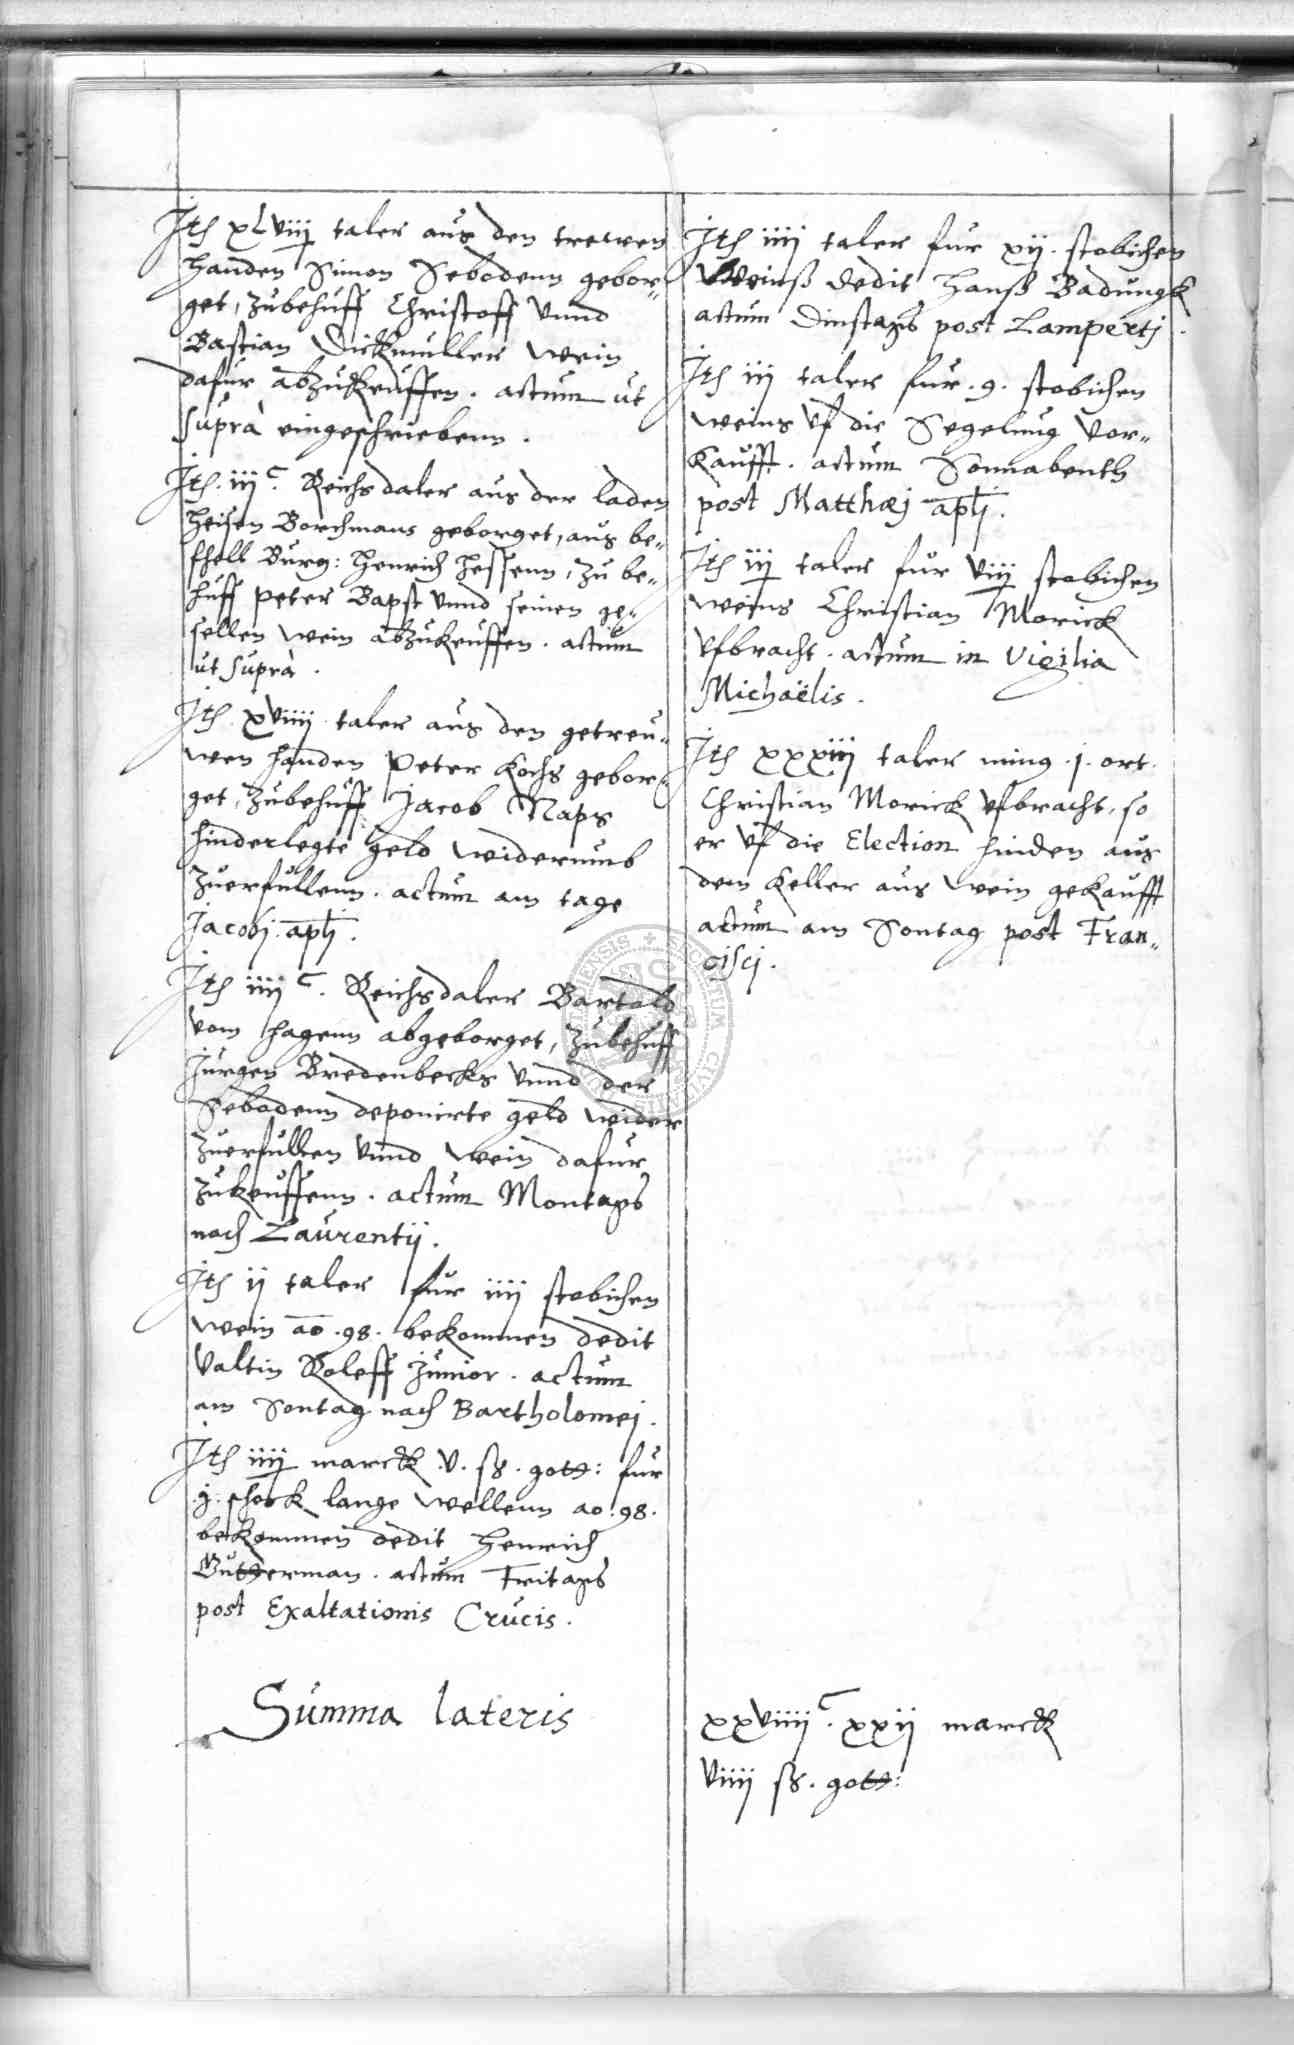 Ite xLviij taler aus den trewen
handen Simon Sebodenn gebor„
get, zubehuff Christoff vnnd
Bastian Dickmuller wein
dafur abzukeuffen. actum ut
suprà eingeschriebenn.
Ite. iij c. Reichsdaler aus der laden
Heisen Borchmans geborget, aus be„
fhell Burg: Henrich Hessenn, zu be„
huff Peter Bapst vnnd seinen ge„
sellen wein abzukeuffen. actum
ut suprà.
Ite xviiij taler aus den getreu„
wen handen Peter Kochs gebor„
get, zubehuff Jacob Naps
hinderlegte geld widerumb
zuerfullenn. actum am tage
Jacobj. aplj.
Ite iiij c. Reichsdaler Bartold
vom Hagenn abgeborget, zubehuff
Jurgen Bredenbecks vnnd der
Sebodenn deponirte geld wider
zuerfullen vnnd wein dafur
zukeuffenn. actum Montags
nach Laurentij.
Ite ij taler fur iiij stobichen
wein ao .98. bekommen dedit
Valtin Roleff junior. actum
am Sontag nach Bartholomej.
Ite iiij marck .v. ß. gott: fur
.j. schock lange wellenn ao .98.
bekommen dedit Henrich
Gutterman. actum Fritags
post Exaltationis Crucis.
Summa lateris
Ite iiij taler fur xij. stobichen
Weinß dedit Hanß Badungk
actum Dinstags post Lampertj.
Ite iij taler fur .9. stobichen
weins vf die Segelnug vor„
kaufft. actum Sonnabenth
post Matthæj aplj.
Ite iij taler fur viij stobichen
weins Christian Morick
vfbracht. actum in Vigilia
Michaëlis.
Ite xxxiij taler ming .j. ort.
Christian Morick vfbracht, so
er vf die Election hinden aus
dem Keller aus wein gekaufft
actum am Sontag post Fran„
cisci.
xxviiij c. xxij marck
viiij ß. gott: